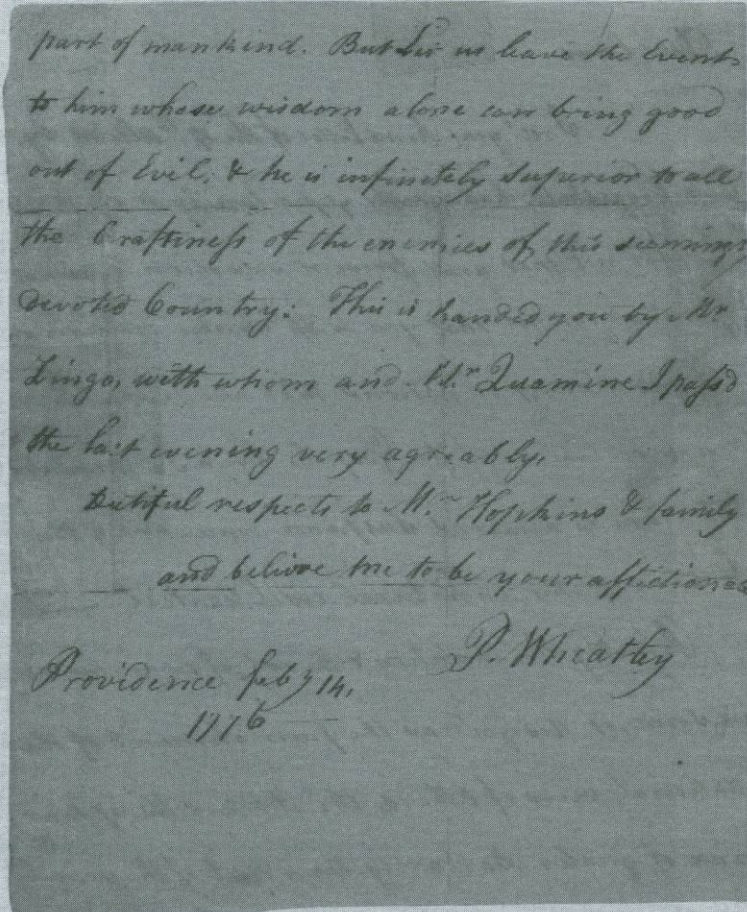 part of mankind. But Let us leave the Event
to him whose wisdom alone can bring good
out of Evil; & he is infinitely superior to all
the Craftiness of the enemies of this seemingly
devoted Country: This is handed you by Mr
Lingo, with whom and Mr Quamine I passd
the last evening very agreably.
Dutiful respects to Mr Hopkins & family
and believe me to be your affectionate
P. Wheatley
Providence feby 14.
1776